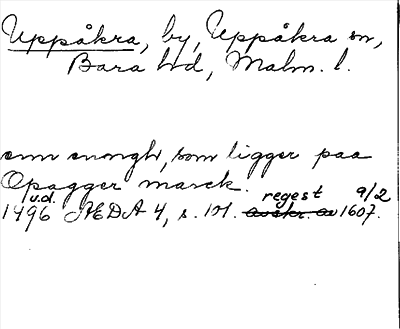 Uppåkra, by, Uppåkra sn,
Bara hd, Malm. l.
enn enonghr, som ligger paa
Opagger marck.
u.d. regest 9/2
1496 ÆDA 4, s. 101. avskr. av 1607.